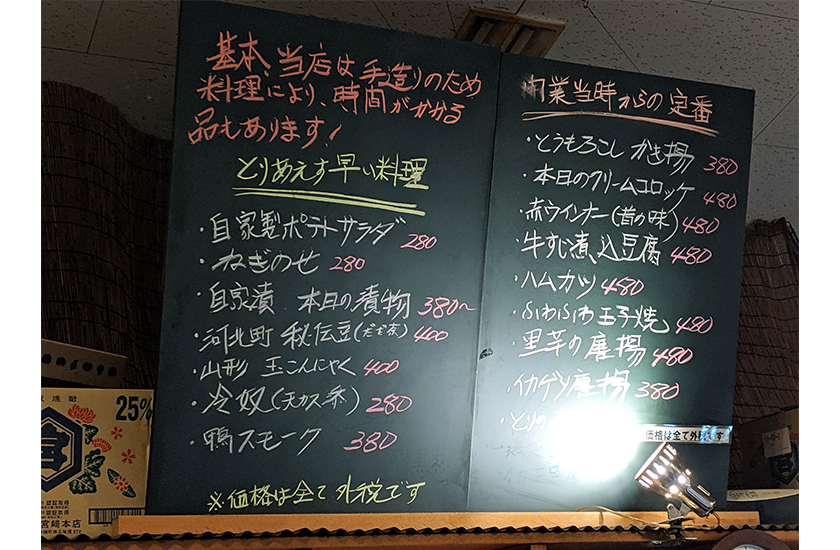 基本、当店は手造りのため
料理により、時間がかかる
品もあります!
とりあえず早い料理
・自家製ポテトサラダ 280
・ねぎのせ 280
・自家漬 本日の漬物 380~
・河北町 秘伝豆(だだ茶) 400
・山形 玉こんにゃく 400
・冷奴(天カス 380
・鴨スモーク 380
※価格は全て外税です
開業当時からの定番
・とうもろこし かき揚 380
・本日のクリームコロッケ 480
・赤ウインナー(昔の味) 480
・牛すじ煮込豆腐 480
・ハムカツ 480
・ふわふわ玉子焼 480
・里芋の唐揚 480
・イカゲソ唐揚 380
・とりの
価格は全て外税です
25%
宮﨑本店